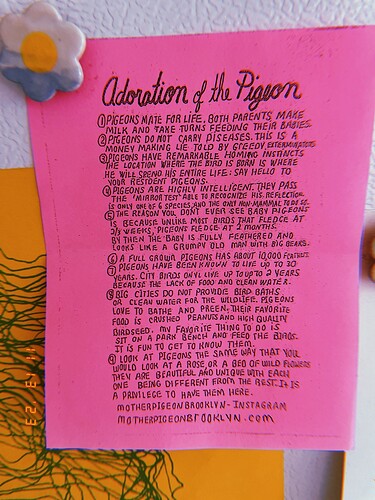 Adoration of the Pigeon
① PIGEONS MATE FOR LIFE. BOTH PARENTS MAKE
MILK AND TAKE TURNS FEEDING THEIR BABIES.
② PIGEONS DO NOT CARRY DISEASES. THIS IS A
MONEY MAKING LIE TOLD BY GREEDY EXTERMINATORS
③ PIGEONS HAVE REMARKABLE HOMING INSTINCTS
THE LOCATION WHERE THE BIRD IS BORN IS WHERE
HE WILL SPEND HIS ENTIRE LIFE: SAY HELLO TO
YOUR RESIDENT PIGEONS.
④ PIGEONS ARE HIGHLY INTELLIGENT. THEY PASS
THE "MIRROR TEST" ABLE TO RECOGNIZE HIS REFLECTION
IS ONLY ONE OF 6 SPECIES, AND THE ONLY NON-MAMMAL TO DO SO.
⑤ THE REASON YOU DONT EVER SEE BABY PIGEONS
IS BECAUSE UNLIKE MOST BIRDS THAT FLEDGE AT
2/3 WEEKS, PIGEONS FLEDGE AT 2 MONTHS.
BY THEN THE BABY IS FULLY FEATHERED AND
LOOKS LIKE A GRUMPY OLD MAN WITH BIG BEAKS.
⑥ A FULL GROWN PIGEON HAS ABOUT 10,000 FEATHERS
⑦ PIGEONS HAVE BEEN KNOWN TO LIFE UP TO 30
YEARS. CITY BIRDS ONLY LIVE UP TO 2 YEARS
BECAUSE THE LACK OF FOOD AND CLEAN WATER.
⑧ BIG CITIES DO NOT PROVIDE BIRD BATHS
OR CLEAN WATER FOR THE WILDLIFE. PIGEONS
LOVE TO BATHE AND PREEN. THEIR FAVORITE
FOOD IS CRUSHED PEANUTS AND HIGH QUALITY
BIRDSEED. MY FAVORITE THING TO DO IS
SIT ON A PARK BENCH AND FEED THE BIRDS.
IT IS FUN TO GET TO KNOW THEM.
⑨ LOOK AT PIGEONS THE SAME WAY THAT YOU
WOULD LOOK AT A ROSE, OR A BED OF WILD FLOWERS
THEY ARE BEAUTIFUL AND UNIQUE WITH EACH
ONE BEING DIFFERENT FROM THE REST. IT IS
A PRIVILEGE TO HAVE THEM HERE.
MOTHERPIGEONBROOKLYN - INSTAGRAM
MOTHERPIGEONBROOKLYN.COM